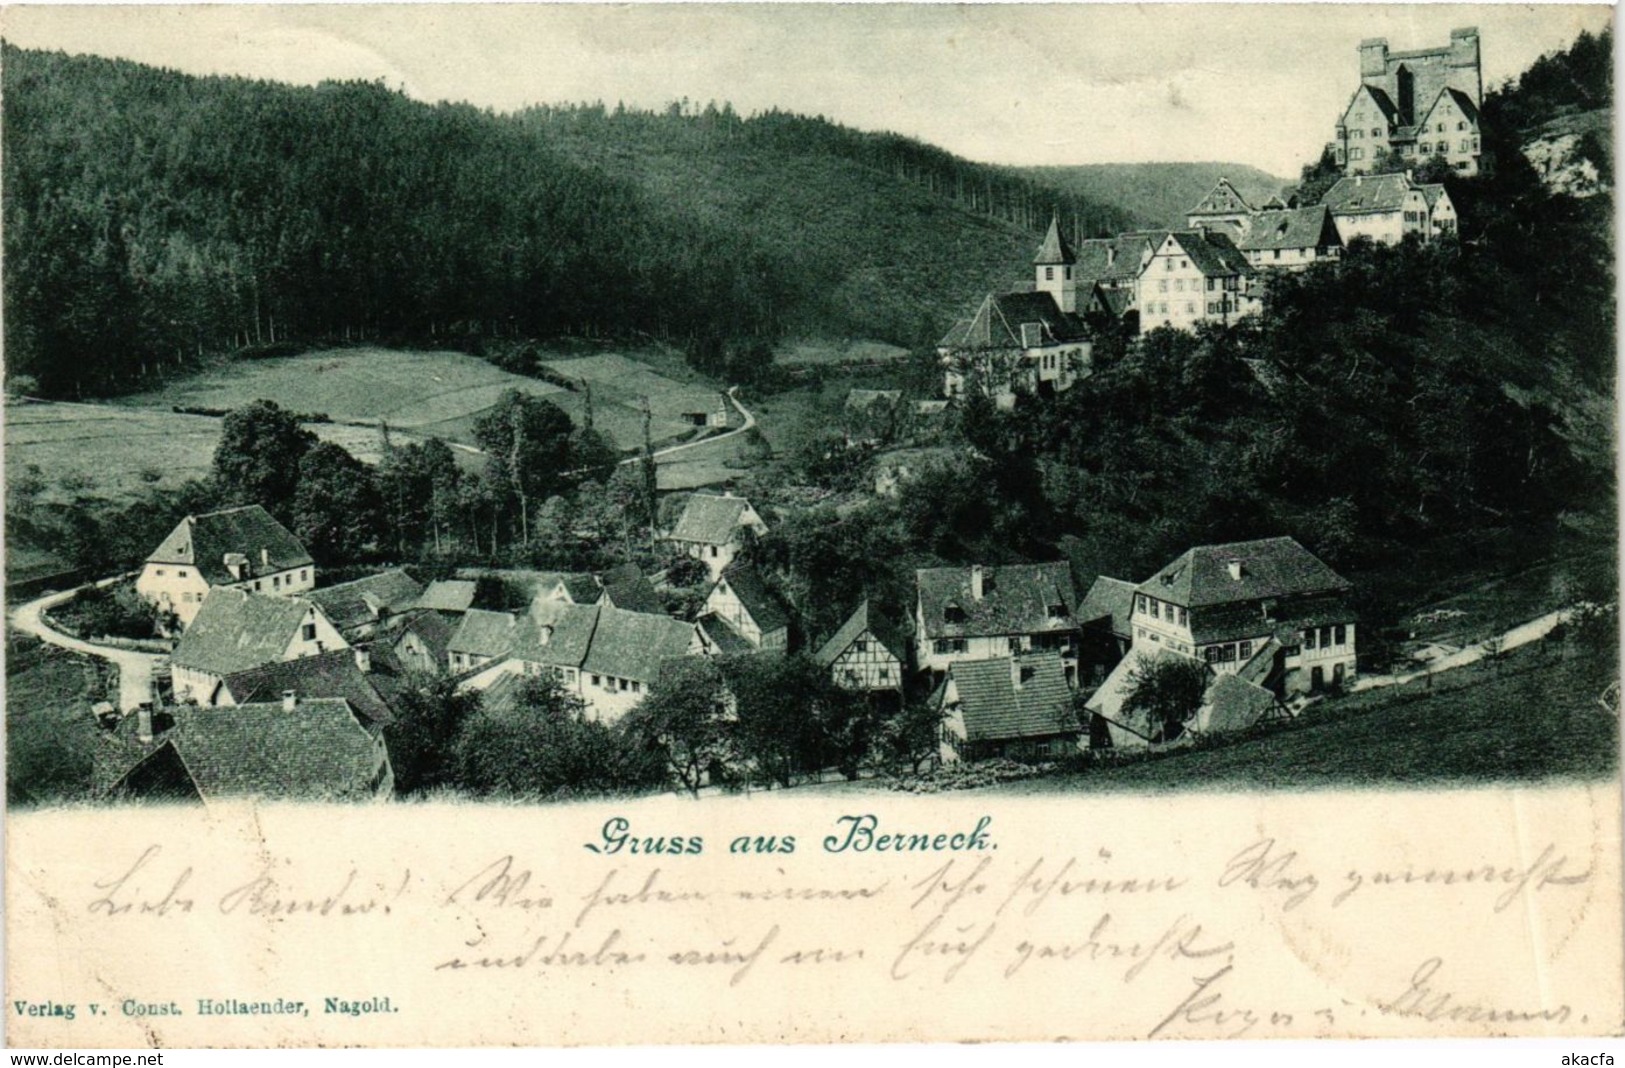 Gruss aus Berneck.
Liebe Kinder! Wir haben einen sehr schönen Weg gemacht
und dabei auch an Euch gedacht.
Papa u. Mama.
Verlag v. Const. Hollaender, Nagold.
www.delcampe.net
akacfa